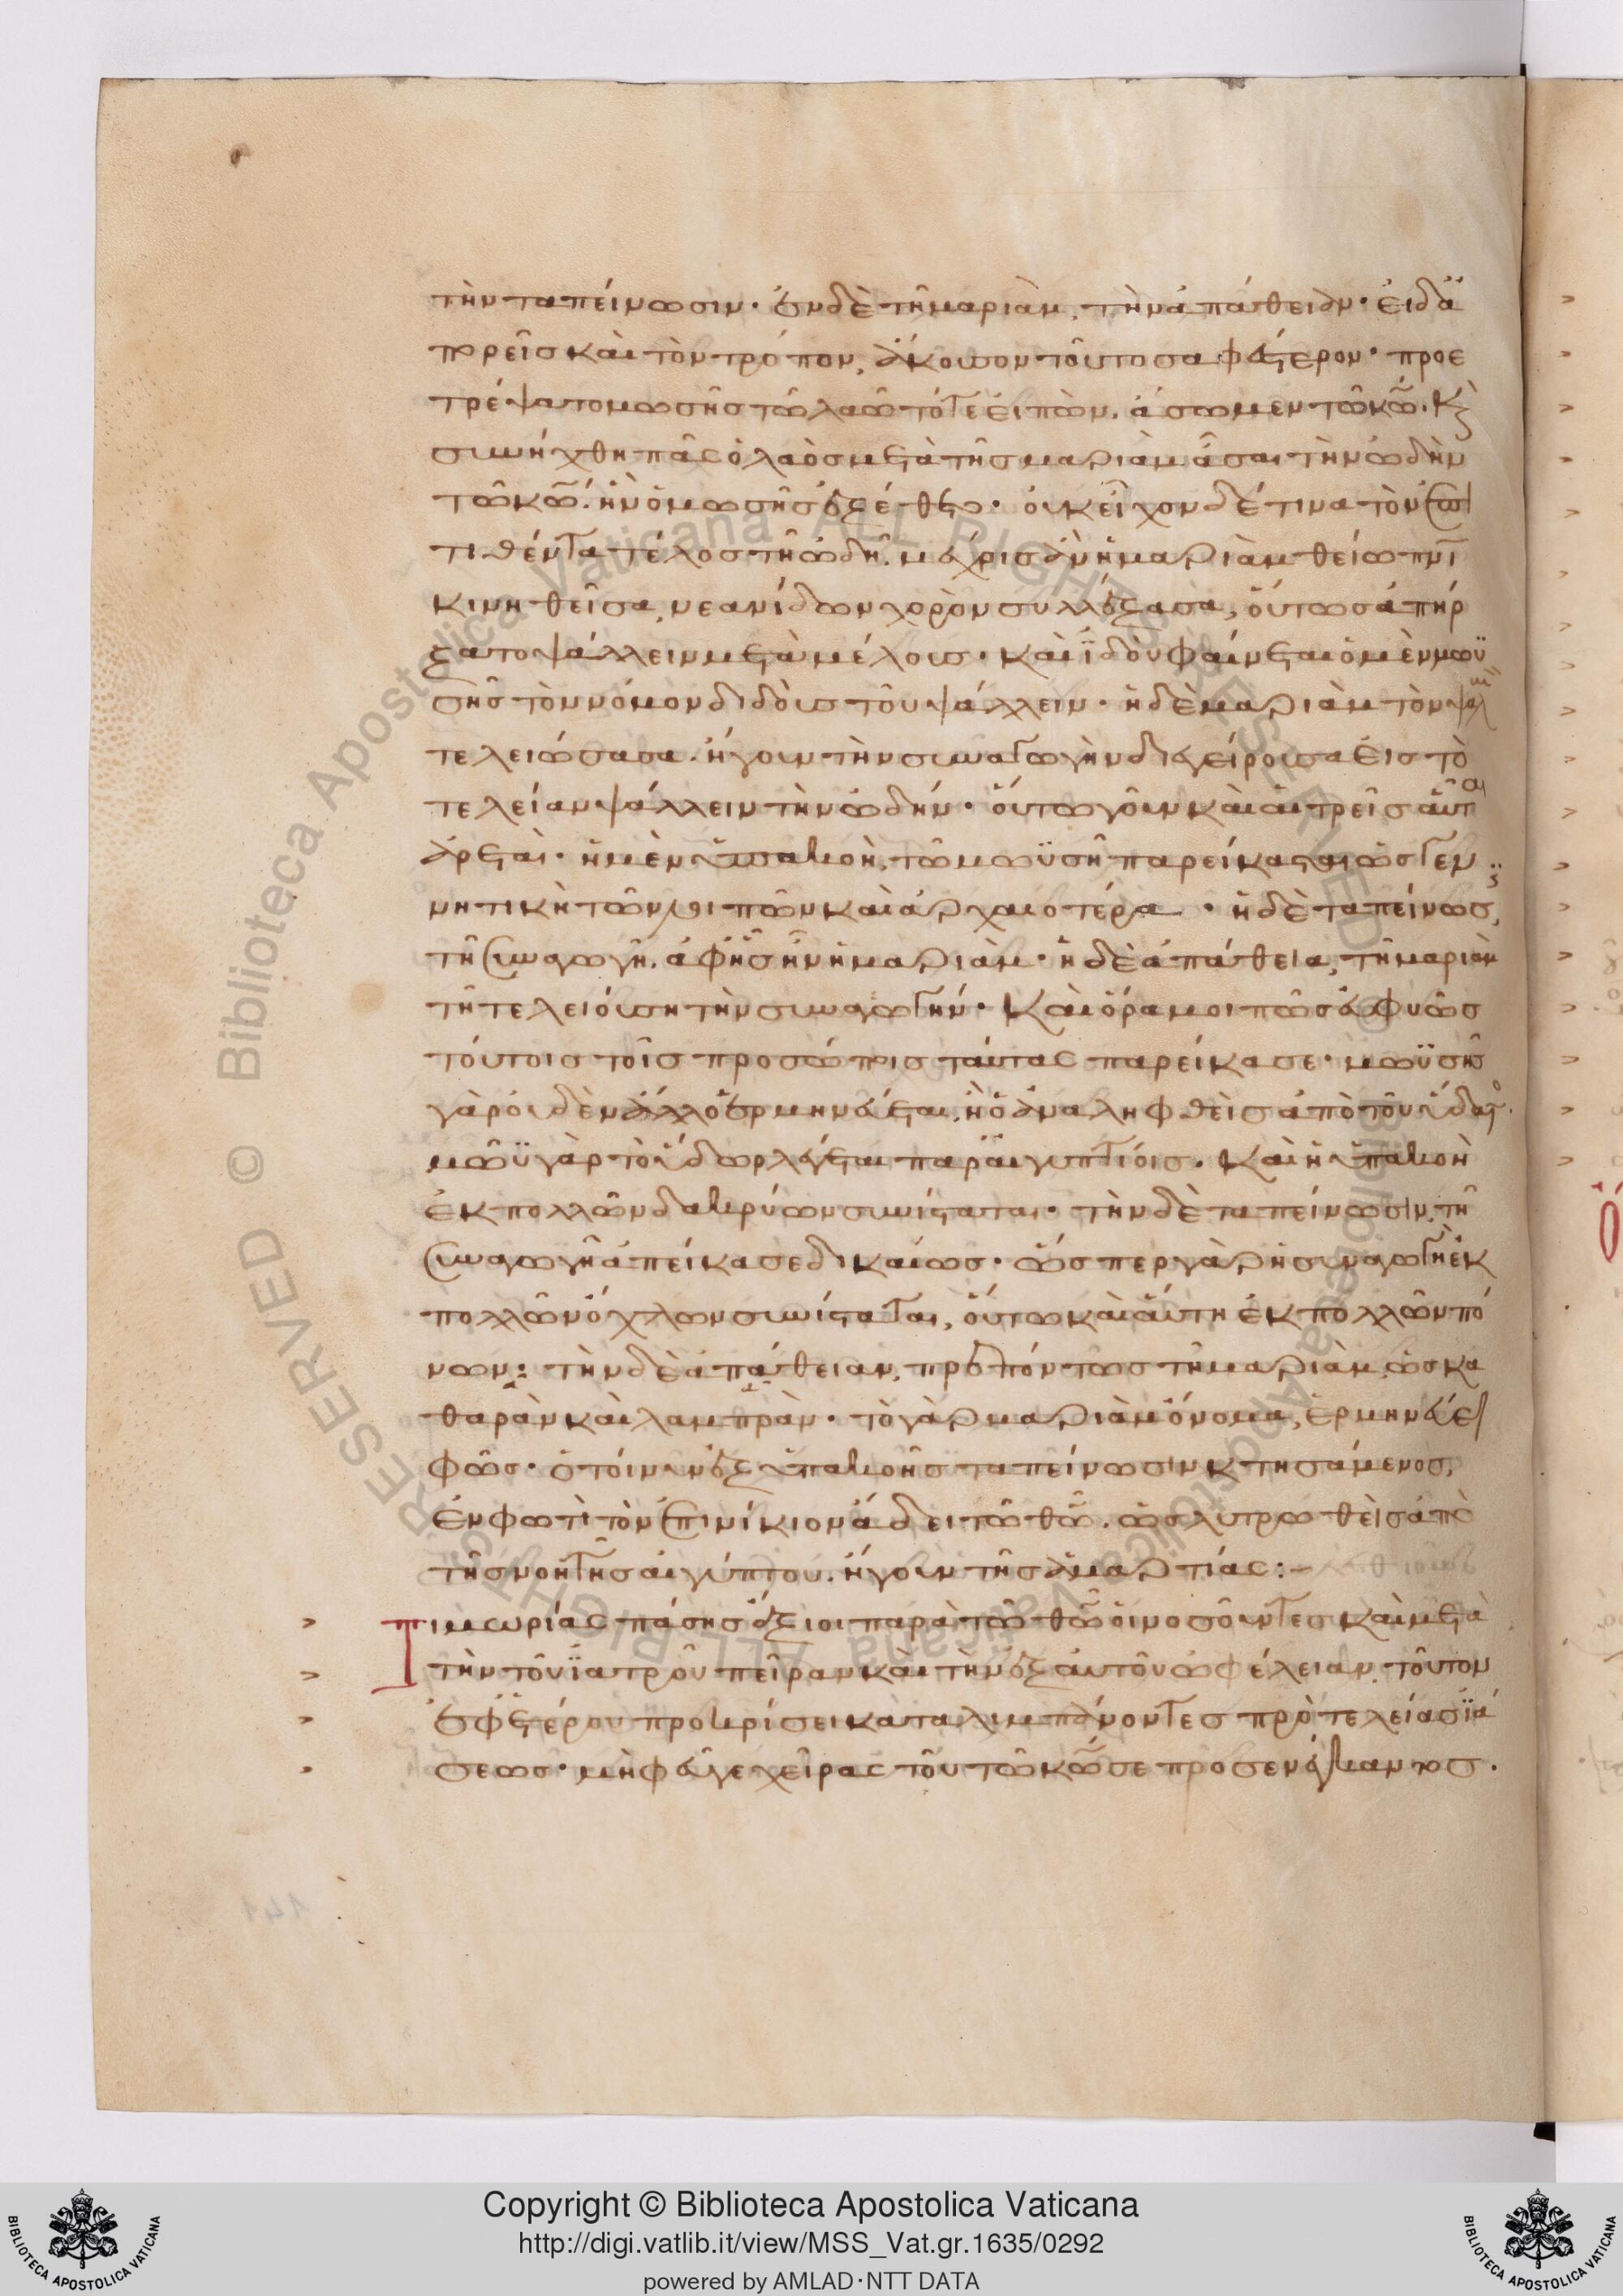 τὴν ταπείνωσιν· ἐν δὲ τῆ μαριὰμ, τὴν ἀπάθειαν· εἰ δ' ἀ
πορεῖς καὶ τὸν τρόπον, ἄκουσον τοῦτο σαφέστερον· προε
τρέψατο μωσῆς τῶ λαῶ τότε εἰπὼν. ἄσωμεν τῶ κω. κ
συνήχθη πᾶς ὁ λαὸς μετὰ τῆς μαριὰμ ἄσαι τὴν ὠδὴν
τῶ κω. ἣν ὁ μωσῆς ἐξέθετο· οὐκ εἶχον δέ τινα τὸν ἐπι
τιθέντα τέλος τῆ ὠδῆ. μέχρις ἂν ἡ μαριὰμ θείω πνι
κινηθεῖσα, νεανίδων χορὸν συλλέξασα, οὕτως ἀπήρ
ξατο ψάλλειν μετὰ μέλους· καὶ ἰδοὺ φαίνεται ὁ μὲν μωϋ
σῆς τὸν νόμον διδοὺς τοῦ ψάλλειν· ἡ δὲ μαριὰμ τὸν ψαλ
τελειώσασα. ἤγουν τὴν συναγωγὴν διεγείρουσα εἰς τὸ
τελείαν ψάλλειν τὴν ὠδήν· οὕτω γοῦν καὶ αἱ τρεῖς αὗται
ἀρεταί· ἡ μὲν ὑπακοὴ, τῶ μωϋσῆ παρείκασται ὡς γεν
νητικὴ τῶν λοιπῶν καὶ ἀρχαιοτέρα· ἡ δὲ ταπείνωσ
τῆ συναγωγῆ. ἀφ' ἧς ἦν ἡ μαριὰμ· ἡ δὲ ἀπάθεια, τῆ μαριὰμ
τῆ τελειούση τὴν συναγωγήν· καὶ ὅρα μοι πῶς εὐφυῶς
τούτοις τοῖς προσώποις ταύτας παρείκασε· μωϋσῆς
γὰρ οὐδὲν ἄλλο ἑρμηνεύεται, ἢ ὁ ἀναληφθεὶς ἀπὸ τοῦ ὕδατο
μωῦ γὰρ τὸ ὕδωρ λέγεται παρ' αἰγυπτίοις. καὶ ἡ ὑπακοὴ
ἐκ πολλῶν δακρύων συνίσταται· τὴν δὲ ταπείνωσιν, τῆ
συναγωγῆ ἀπείκασε δικαίως· ὥσπερ γὰρ ἡ συναγωγὴ ἐκ
πολλῶν ὄχλων συνίσταται, οὕτω καὶ αὕτη ἐκ πολλῶν πό
νων: τὴν δὲ ἀπάθειαν, πρεπόντως τῆ μαριὰμ, ὡς κα
θαρὰν καὶ λαμπρὰν· τὸ γὰρ μαριὰμ ὄνομα, ἑρμηνεύε
φῶς· ὁ τοίνυν ἐξ ὑπακοῆς ταπείνωσιν κτησάμενος,
ἐν φωτὶ τὸν ἐπινίκιον ἄδει τῶ θω. ὡς λυτρωθεὶς ἀπὸ
τῆς νοητῆς αἰγύπτου. ἤγουν τῆς ἁμαρτίας:-
Τιμωρίας πάσης ἄξιοι παρὰ τῶ θω οἱ νοσοῦντες καὶ μετὰ
τὴν τοῦ ἰατροῦ πεῖραν καὶ τὴν ἐξ αὐτοῦ ὠφέλειαν, τοῦτον
ἐφ' ἑτέρου προκρίσει καταλιμπάνοντες πρὸ τελείας ἰά
σεως· μὴ φεῦγε χεῖρας τοῦ τῶ κω σε προσενέγκαντος.